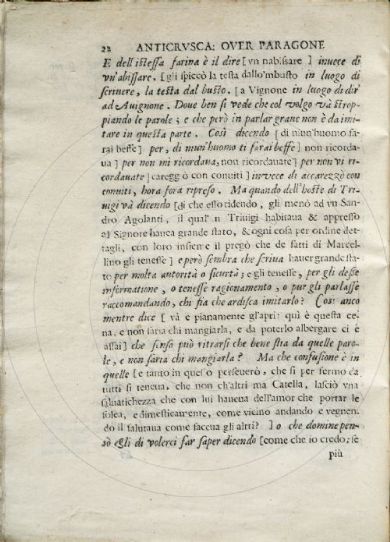 22 ANTICRVSCA: OVER PARAGONE
E dell'istessa farina è il dire [vn nabissare] inuece di
vn'abissare. [gli spiccò la testa dallo'mbusto in luogo di
scriuere, la testa dal busto. [a Vignone in luogo di dir'
ad Auignone. Doue ben si vede che col volgo và strop-
piando le parole; e che però in parlar graue non è da imi-
tare in questa parte. Così dicendo [di niun'huomo fa-
rai beffe] per, di niun'huomo ti farai beffe] non ricorda-
ua] per non mi ricordaua, non ricordauate] per non vi ri-
cordauate] careggiò con conuiti] inuece di accarezzò con
conuiti, hora fora ripreso. Ma quando dell'hoste di Tri-
uigi và dicendo [di che esso ridendo, gli menò ad vn San-
dro Agolanti, il qual'n Triuigi habitaua & appresso
al Signore hauea grande stato, & ogni cosa per ordine det-
tagli, con loro insieme il pregò che de fatti di Marcel-
lino gli tenesse] e però sembra che scriua hauer grande sta-
to per molta autorità o sicurtà; e gli tenesse, per gli desse
informatione, o tenesse ragionamento, o pur gli parlasse
raccomandando, chi fia che ardisca imitarlo? Così anco
mentre dice [và e pianamente gl'apri: quì è questa ce-
na, e non saria chi mangiarla, e da poterlo albergare ci è
assai] che senso può ritrarsi che bene stia da quelle paro-
le, e non saria chi mangiarla? Ma che confusione è in
quelle [e tanto in quello perseuerò, che sì per fermo da
tutti si teneua, che non ch'altri ma Catella, lasciò vna
saluatichezza che con lui haueua dell'amor che portar le
solea, e dimesticamente, come vicino andando e vegnen-
do il salutaua come faceua gli altri?] o che domine pen-
sò egli di volerci far saper dicendo [come che io credo, se
più